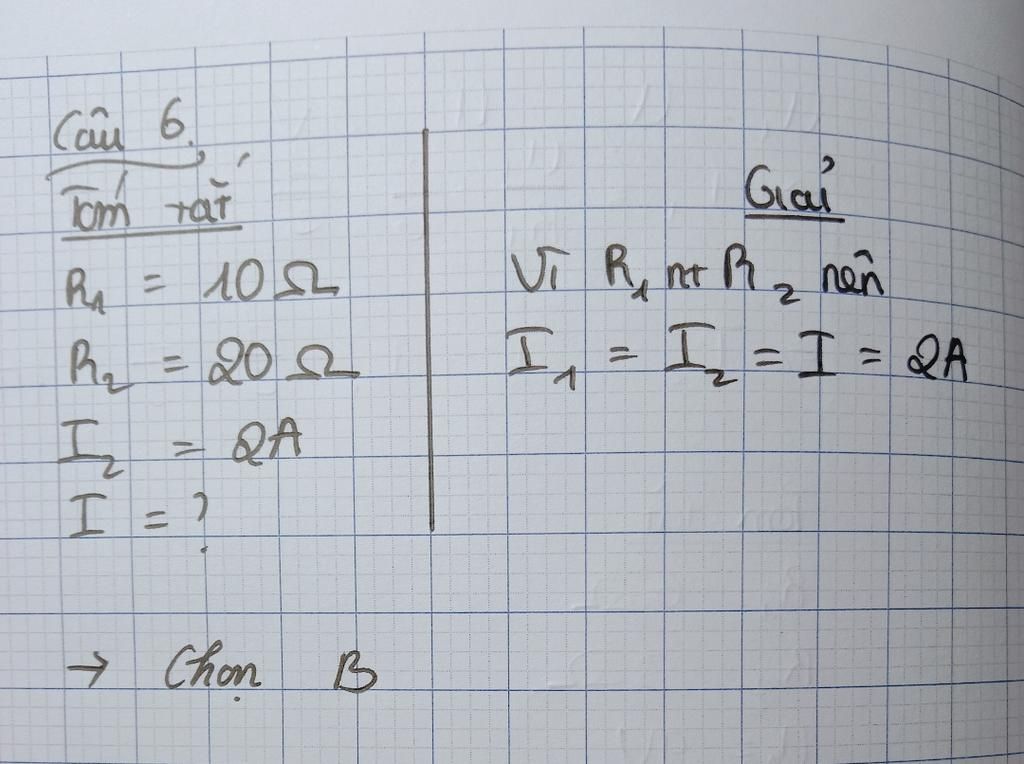 Câu 6.
Tóm tắt
R₁ = 10 Ω
R₂ = 20 Ω
I₂ = 2A
I = ?
Giải
Vì R₁ nt R₂ nên
I₁ = I₂ = I = 2A
→ Chọn B